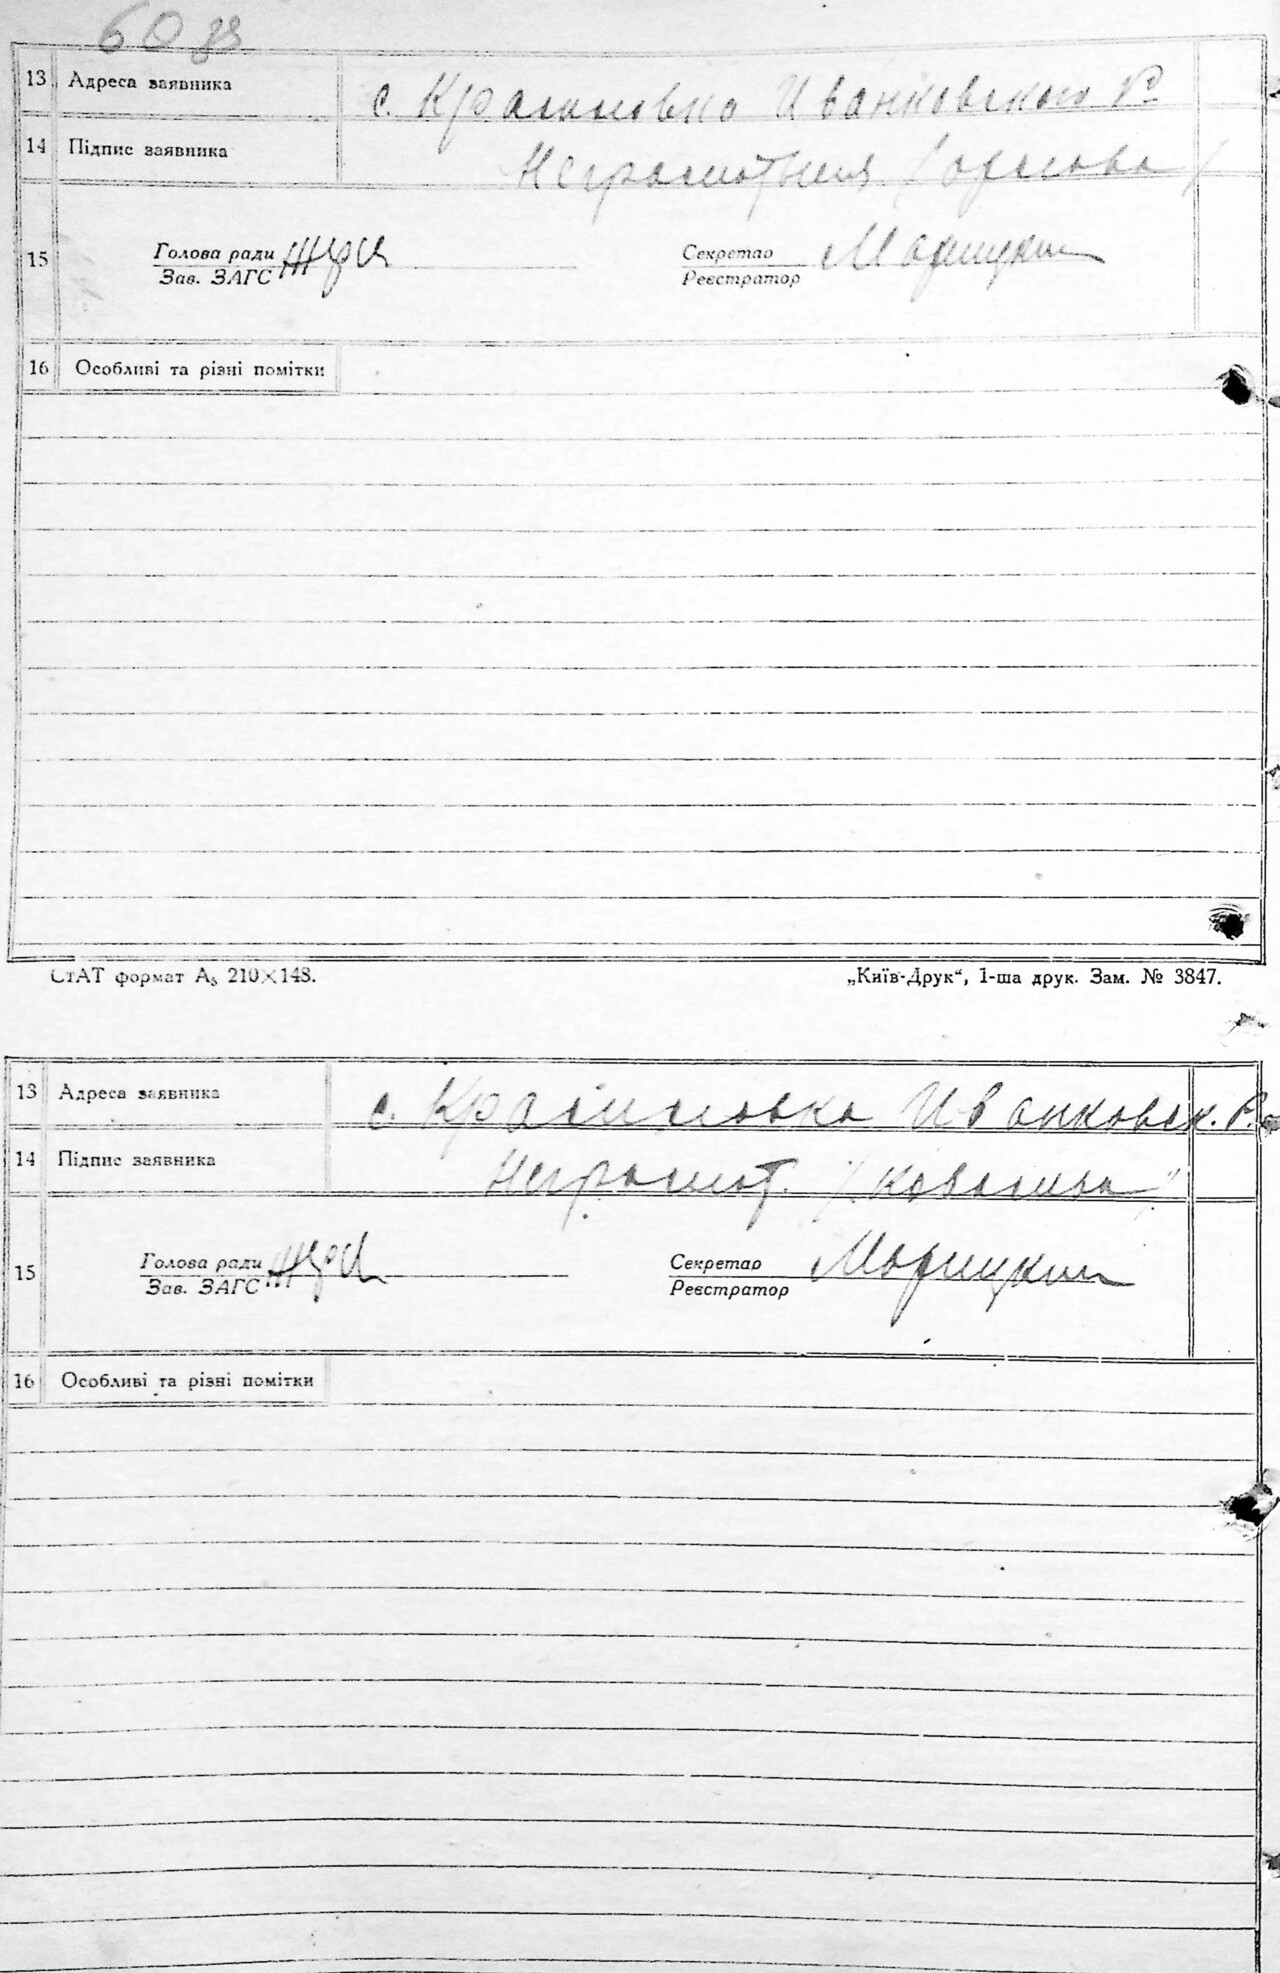 60 зв
13 Адреса заявника с. Красиловка Иванковского Р.
14 Підпис заявника Неграмотная /Орлова/
15 Голова ради Секретар
Зав. ЗАГС Реєстратор
16 Особливі та різні помітки
СтАТ формат А₅ 210×148. „Київ-Друк“, 1-ша друк. Зам. № 3847.
13 Адреса заявника с. Красиловка Иванковск. Р.
14 Підпис заявника Неграмот.
15 Голова ради Секретар
Зав. ЗАГС Реєстратор
16 Особливі та різні помітки